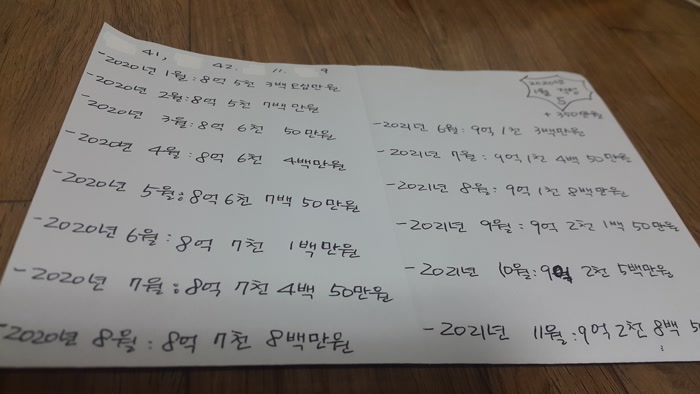 41, 42. 11. 9
-2020년 1월 : 8억 5천 3백 5십만원
-2020년 2월 : 8억 5천 7백만원
-2020년 3월 : 8억 6천 50만원
-2020년 4월 : 8억 6천 4백만원
-2020년 5월 : 8억 6천 7백 50만원
-2020년 6월 : 8억 7천 1백만원
-2020년 7월 : 8억 7천 4백 50만원
-2020년 8월 : 8억 7천 8백만원
2020년
1월
5
+ 350만원
-2021년 6월 : 9억 1천 3백만원
-2021년 7월 : 9억 1천 4백 50만원
-2021년 8월 : 9억 1천 8백만원
-2021년 9월 : 9억 2천 1백 50만원
-2021년 10월 : 9억 2천 5백만원
-2021년 11월 : 9억 2천 8백